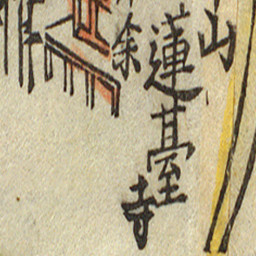 山
蓮臺寺
余